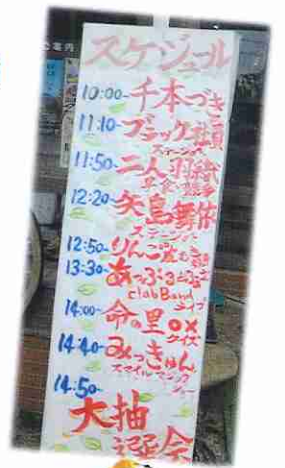 案内
スケジュール
10:00~千本づき
11:10~ブラック社員
ステージ
11:50~二人羽織
早食い競争
12:20~矢島舞依
ステージ
12:50~りんご皮むき
13:30~あっぷるどぶる
club Band
ライブ
14:00~命の里〇×
クイズ
14:40~みっきゅん
スマイルマジック
ショー
14:50~
大抽
選会